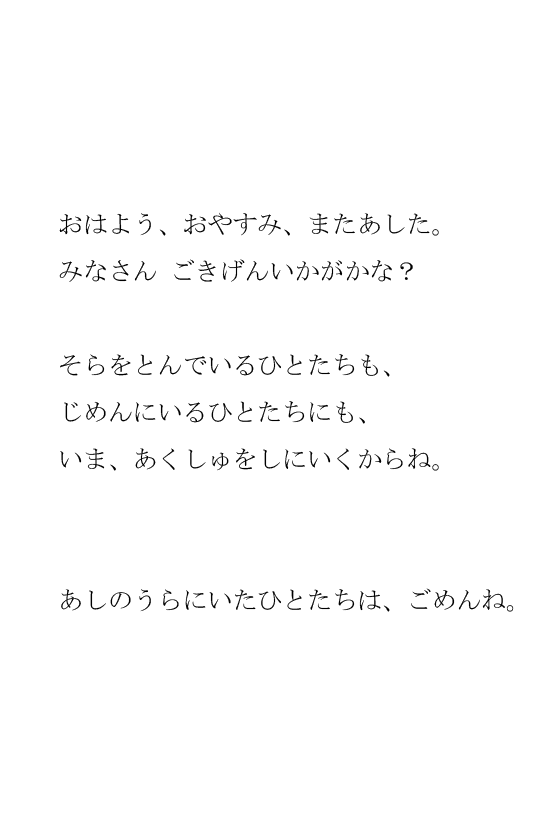 おはよう、おやすみ、またあした。
みなさん ごきげんいかがかな？
そらをとんでいるひとたちも、
じめんにいるひとたちにも、
いま、あくしゅをしにいくからね。
あしのうらにいたひとたちは、ごめんね。